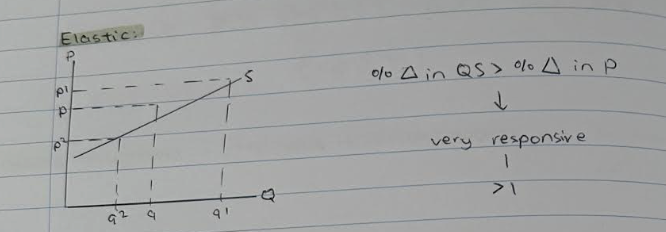 Elastic:
P
P¹
P
P²
S
q² q q¹
Q
% Δ in QS > % Δ in P
↓
very responsive
|
>1